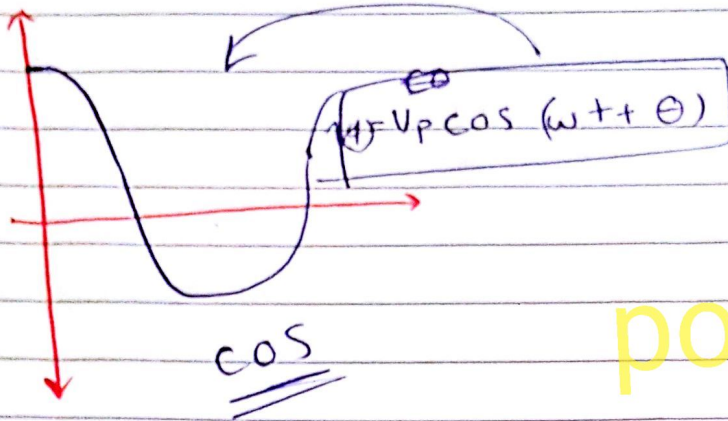 Vp cos (ωt + θ)
cos
po